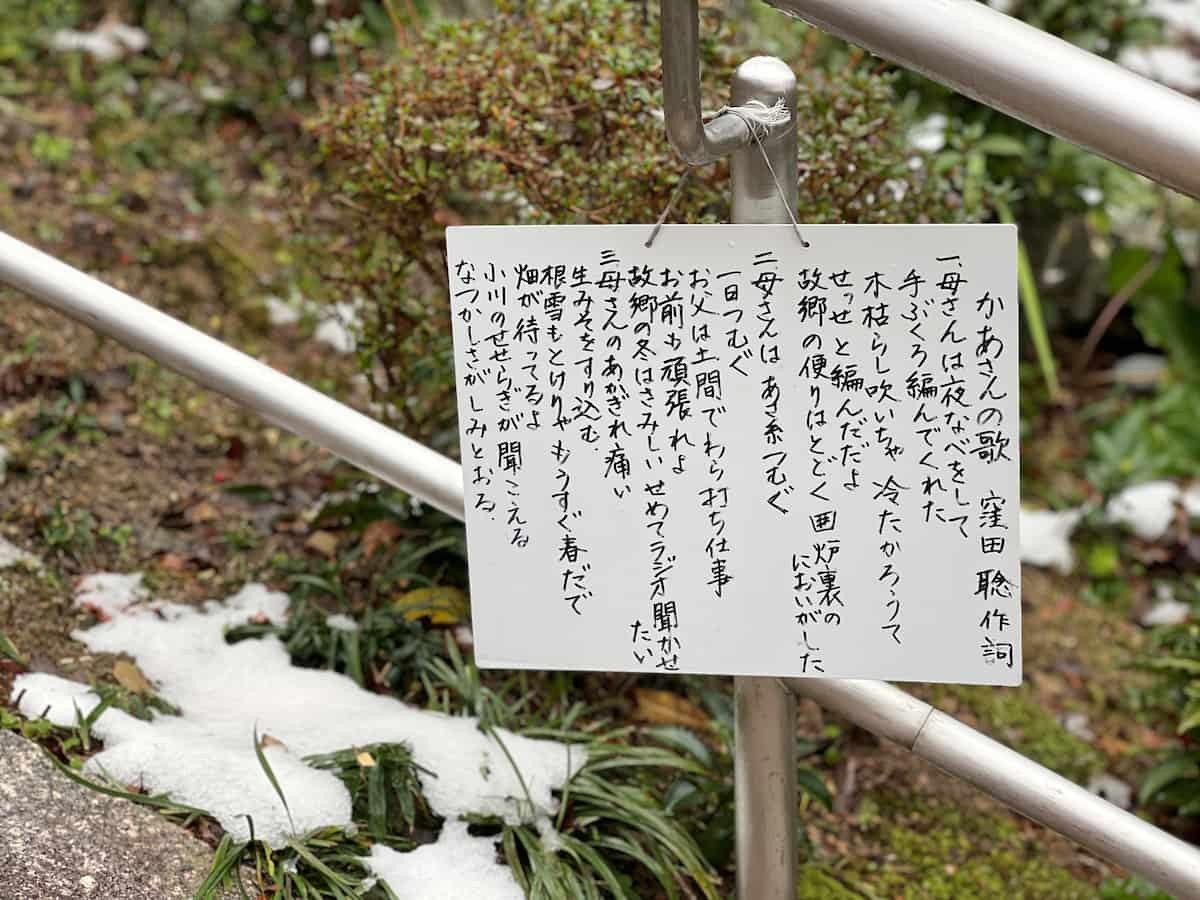 かあさんの歌 窪田聡作詞
一、母さんは夜なべをして
手ぶくろ編んでくれた
木枯らし吹いちゃ冷たかろうて
せっせと編んだだよ
故郷の便りはとどく囲炉裏の
においがした
二母さんはあさ糸つむぐ
一日つむぐ
お父は土間でわら打ち仕事
お前も頑張れよ
故郷の冬はさみしいせめてラジオ聞かせ
たい
三母さんのあかぎれ痛い
生みそをすり込む.
根雪もとけりゃもうすぐ春だで
畑が待ってるよ
小川のせせらぎが聞こえる
なつかしさがしみとおる.